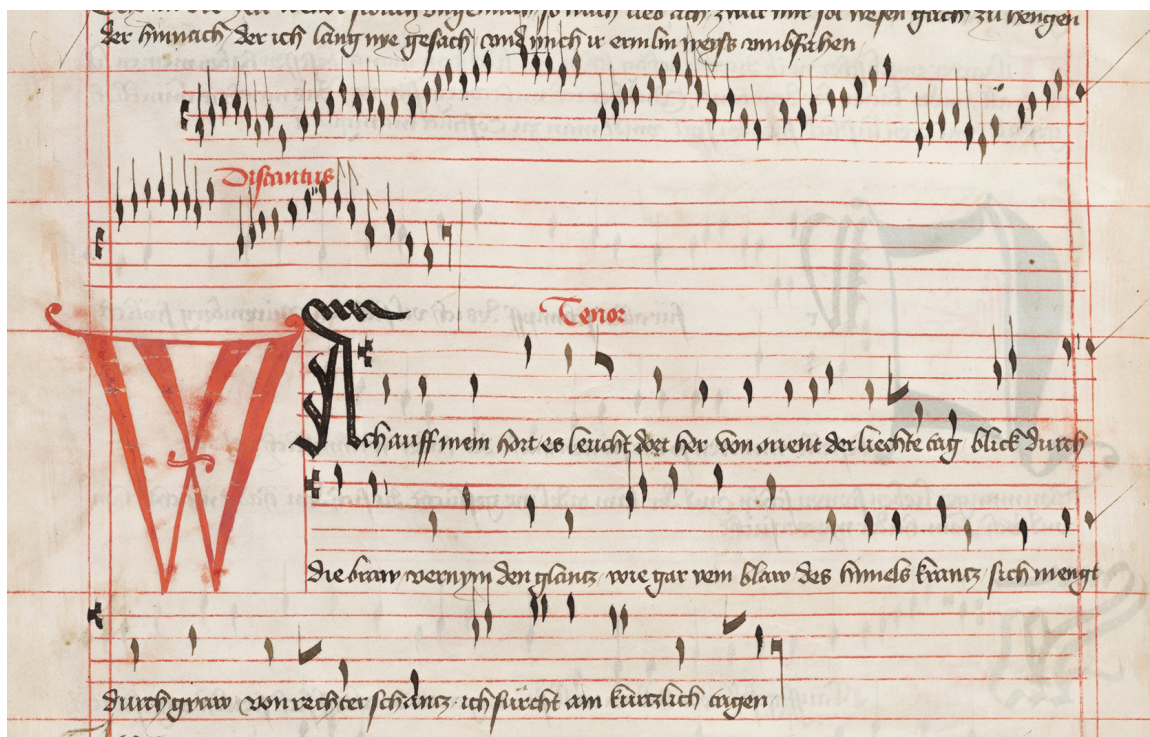 der hinnach der ich lang nye gesach vnd mich ir ermlin weiss vmbfahen
Discantus
Tenor
WAch auff mein hort es leucht dort her von orient der liechte tag blick durch
die braw vernym den glantz wie gar vein blaw des himels krantz sich mengt
durch graw von rechter schantz ich fürcht ain kurtzlich tagen